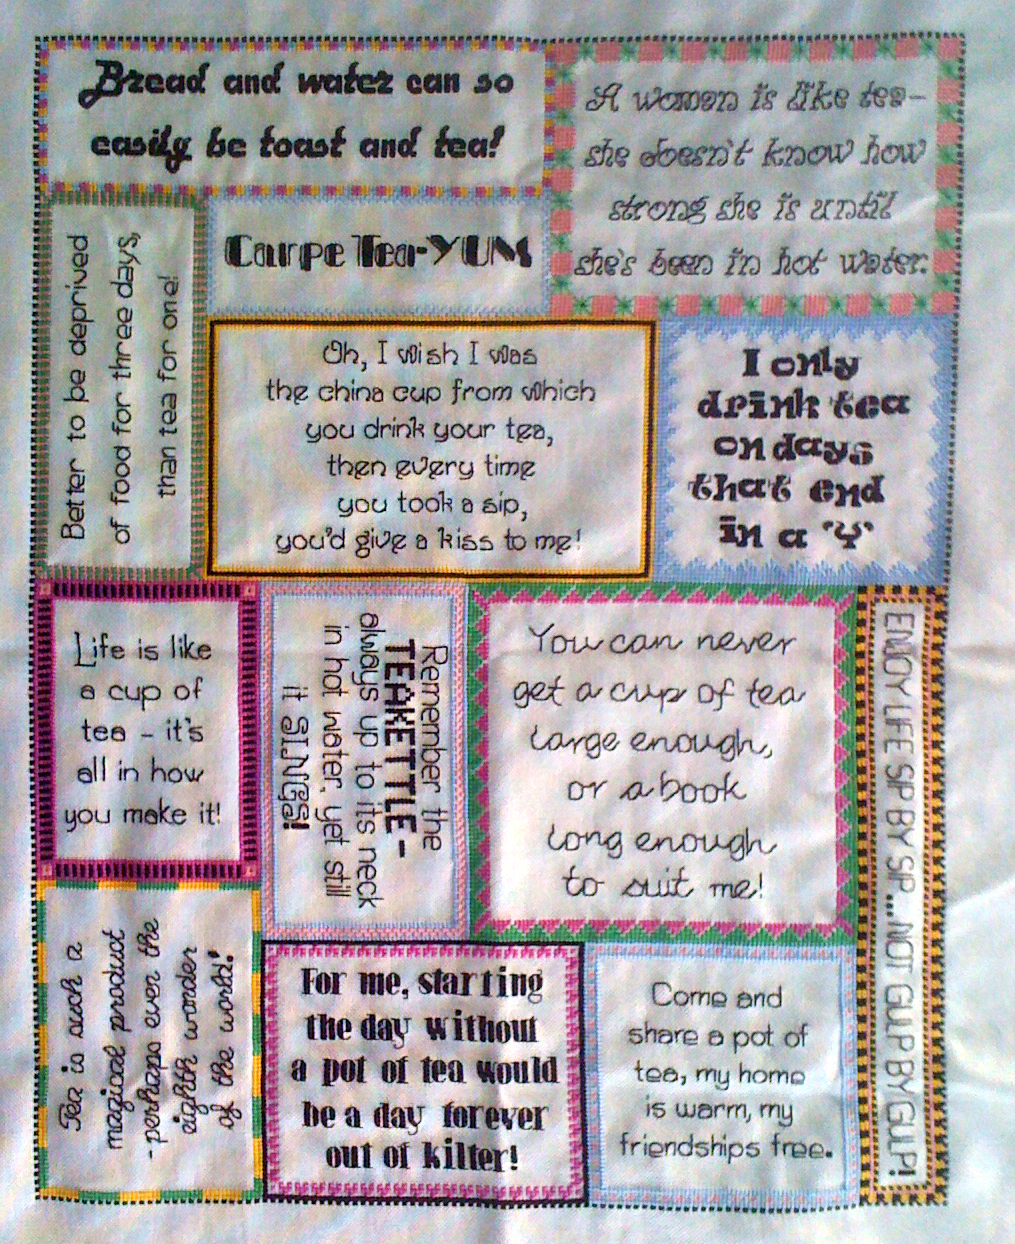 Bread and water can so
easily be toast and tea!
A women is like tea-
she doesn't know how
strong she is until
she's been in hot water.
Better to be deprived
of food for three days,
than tea for one!
Carpe Tea-YUM
Oh, I wish I was
the china cup from which
you drink your tea,
then every time
you took a sip,
you'd give a kiss to me!
I only
drink tea
on days
that end
in a 'Y'
Life is like
a cup of
tea - it's
all in how
you make it!
Remember the
TEAKETTLE -
always up to its neck
in hot water, yet still
it SINGS!
You can never
get a cup of tea
large enough,
or a book
long enough
to suit me!
ENJOY LIFE SIP BY SIP... NOT GULP BY GULP!
Tea is such a
magical product
- perhaps even the
eighth wonder
of the world!
For me, starting
the day without
a pot of tea would
be a day forever
out of kilter!
Come and
share a pot of
tea, my home
is warm, my
friendships free.